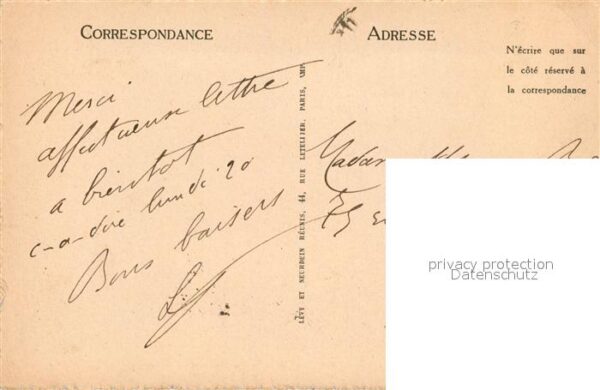 CORRESPONDANCE
Merci
affectueuse lettre
a bientot
c-a-dire lundi 20
Bons baisers
LÉVY ET NEURDEIN RÉUNIS, 44, RUE LETELLIER, PARIS, IMP.
ADRESSE
N'écrire que sur
le côté réservé à
la correspondance
Madame
75
privacy protection
Datenschutz